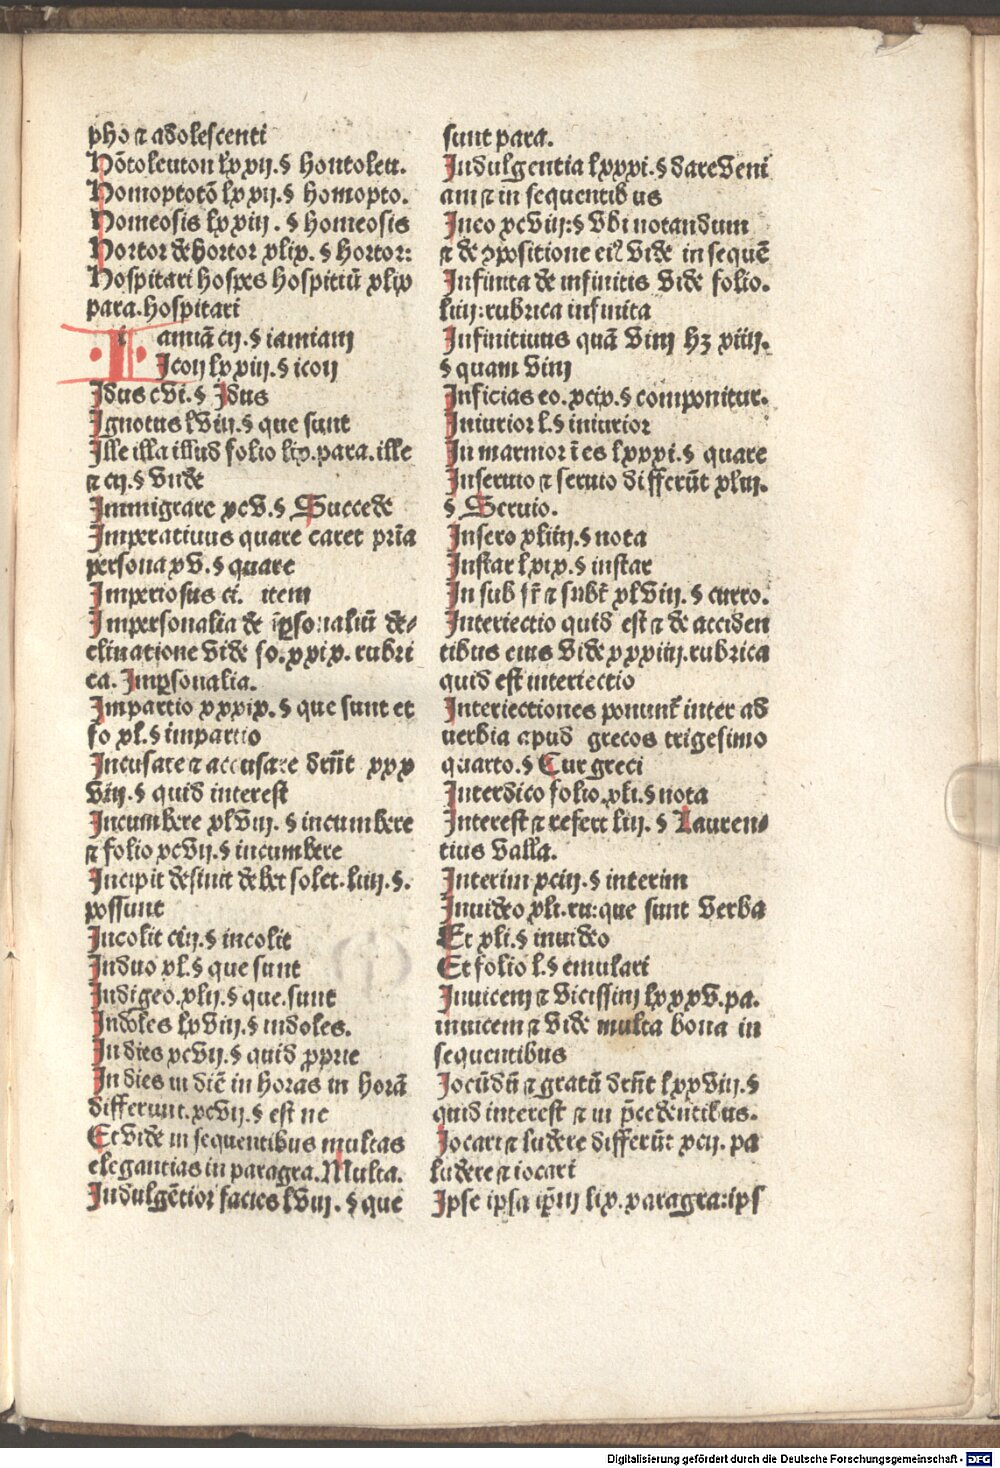 pho ⁊ adolescenti
Hōtoleuton lxxij.§ hontoleu.
Homoptotō lxxij.§ homopto.
Homeosis lxxiij. § homeosis
Hortor dehortor xlix. § hortor:
Hospitari hospes hospitiū xlix
para.hospitari
Iamiā cij.§ iamiam
Icon lxxiij.§ icon
Idus cvi.§ Idus
Ignotus lviij.§ que sunt
Ille illa illud folio lix.para.ille
⁊ cij.§ vnde
Immigrare xcv.§ Succede
Imperatiuus quare caret prīa
persona xv.§ quare
Imperiosus ci. item
Impersonalia de īꝑsonaliū de⸗
clinatione vide fo.xxix.rubri
ca. Imꝑsonalia.
Impartio xxxix.§ que sunt et
fo xl.§ impartio
Incusare ⁊ accusare drn̄t xxx
viij.§ quid interest
Incumbere xlviij. § incumbere
⁊ folio xcvij.§ incumbere
Incipit desinit debet solet.liiij.§.
possunt
Incolit ciij.§ incolit
Induo xl.§ que sunt
Indigeo.xlij.§ que.sunt
Indoles lxviij.§ indoles.
In dies xcvij.§ quid ꝓprie
In dies in diē in horas in horā
differunt.xcvij.§ est ne
Et vide in sequentibus multas
elegantias in paragra.Multa.
Indulgētior facies lviij. § que
sunt para.
Indulgentia lxxxi.§ dare veni
am ⁊ in sequentibus
Ineo xcviij:§ vbi notandum
⁊ de ꝯpositione eiꝰ vide in sequē
Infinita de infinitis vide folio.
liiij:rubrica infinita
Infinitiuus quā vim hꝫ xiiij.
§ quam vim
Inficias eo.xcix.§ componitur.
Iniurior l.§ iniurior
In marmor ī es lxxxi.§ quare
Inseruio ⁊ seruio differūt xlij.
§ Seruio.
Insero xliiij.§ nota
Instar lxix.§ instar
In sub sr̄ ⁊ subt̄ xlviij. § curro.
Interiectio quid est ⁊ de acciden
tibus eius vide xxxiiij.rubrica
quid est interiectio
Interiectiones ponunt̄ inter ad
uerbia apud grecos trigesimo
quarto.§ Cur greci
Interdico folio.xli.§ nota
Interest ⁊ refert liij. § Lauren⸗
tius valla.
Interim xciij.§ interim
Inuideo xli.ru:que sunt verba
Et xli.§ inuideo
Et folio l.§ emulari
Inuicem ⁊ vicissim lxxxv.pa.
inuicem ⁊ vide multa bona in
sequentibus
Iocūdū ⁊ gratū drn̄t lxxviij.§
quid interest ⁊ in p̄cedentibus.
Iocari ⁊ ludere differūt xcij. pa
ludere ⁊ iocari
Ipse ipsa ip̄m lix.paragra:ips
Digitalisierung gefördert durch die Deutsche Forschungsgemeinschaft - DFG